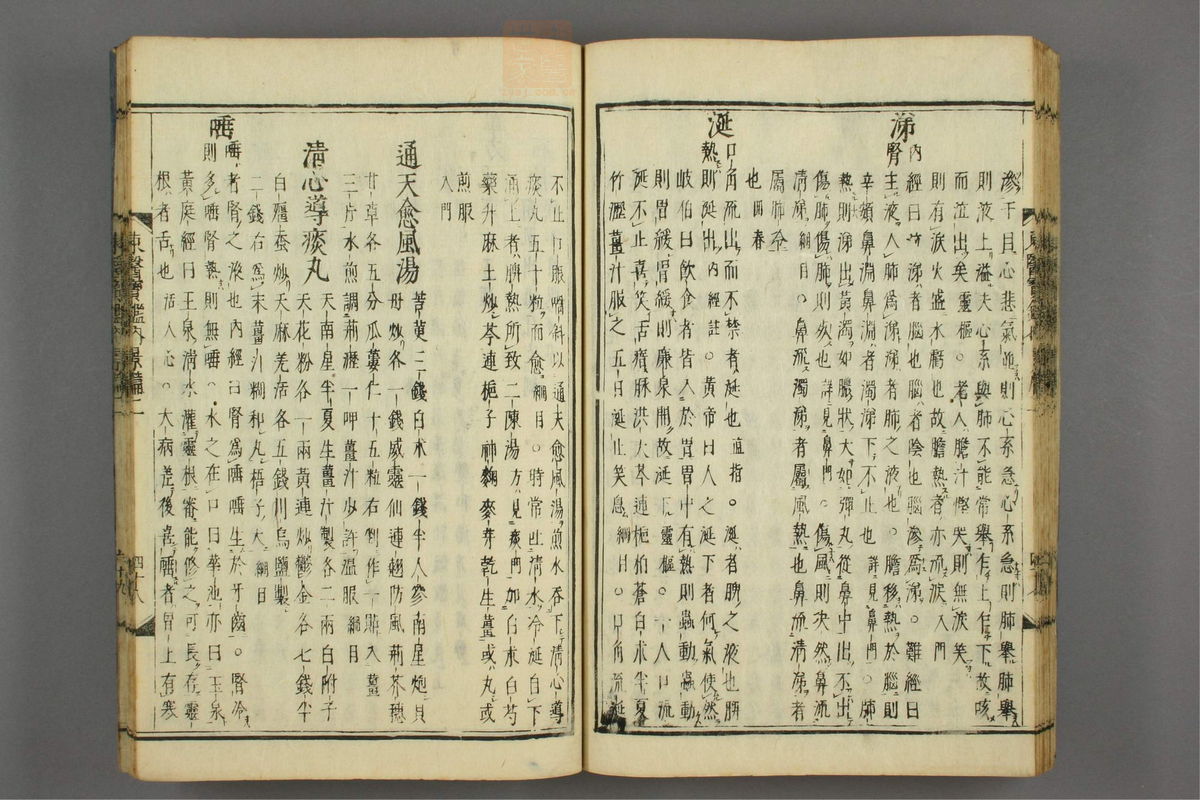 滲于目心悲氣並則心系急心系急則肺舉肺舉
則液上溢夫心系與肺不能常舉乍上乍下故咳
而泣出矣靈樞○老人膽汁慳哭則無淚笑
則有淚火盛水虧也故膽熱者亦流淚入門
涕
內經曰 涕者腦也腦者陰也腦滲爲涕○難經曰
腎主液入肺爲涕涕者肺之液也○膽移熱於腦則
辛頞鼻淵鼻淵者濁涕下不止也 詳見鼻門○肺
熱則涕出黃濁如膿狀大如彈丸從鼻中出不出
傷肺傷肺則死也詳見鼻門○傷風則決然鼻流
清涕綱目○鼻流濁涕者屬風熱也鼻流清涕者
屬肺冷
也回春
涎
口角流出而不禁者涎也直指○涎者脾之液也脾
熱則涎出內經註○黃帝曰人之涎下者何氣使然
岐伯曰飲食者皆入於胃胃中有熱則蟲動蟲動
則胃緩胃緩則廉泉開故涎下靈樞○一人口流
涎不止喜笑舌瘖脉洪大芩連梔柏蒼白朮半夏
竹瀝薑汁服之五日涎止笑息綱目○口角流涎
不止口眼喎斜以通天愈風湯煎水吞下清心導
痰丸五十粒而愈綱目○時常吐清水冷涎自下
涌上者脾熱所致二陳湯方見痰門加白朮白芍
藥升麻土炒芩連梔子神麴麥芽乾生薑或丸或
煎服
入門
通天愈風湯
苦莄二錢白朮一錢半人參南星炮貝
母炒各一錢威靈仙連翹防風荊芥穗
甘草各五分瓜蔞仁十五粒右剉作一貼入薑
三片水煎調荊瀝一呷薑汁少許溫服綱目
清心導痰丸
天南星半夏生薑汁製各二兩白附子
天花粉各一兩黃連炒鬱金各七錢半
白殭蚕炒天麻羌活各五錢川烏鹽製
二錢右爲末薑汁糊和丸梧子大綱目
唾
唾者腎之液也內經曰腎爲唾唾生於牙齒○腎冷
則多唾腎熱則無唾○水之在口曰華池亦曰玉泉
黃庭經曰玉泉清水灌靈根審能修之可長存靈
根者舌也活人心○大病差後喜唾者胃上有寒
東醫寶鑑內景篇二
四十八